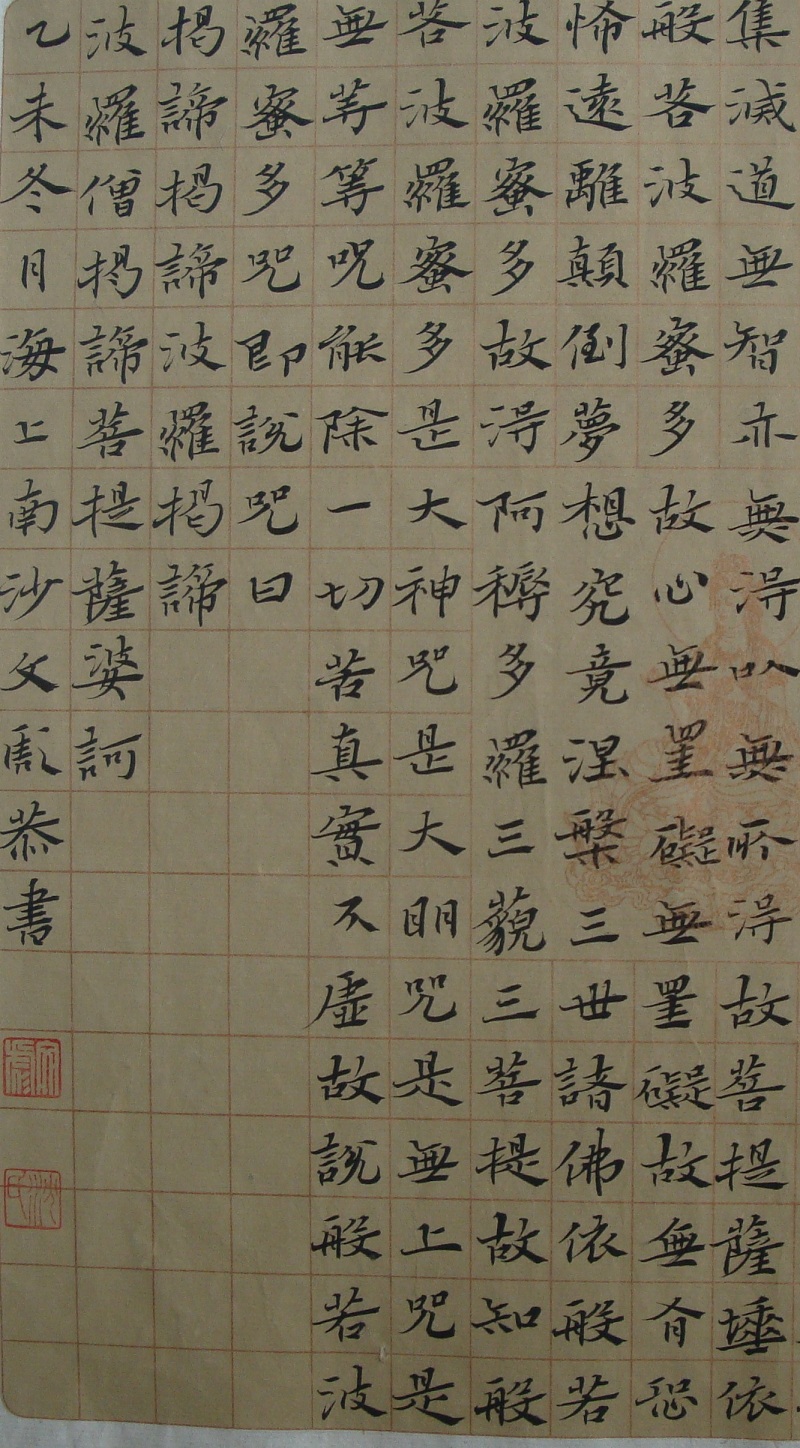 集滅道無智亦無得以無所得故菩提薩埵依
般若波羅蜜多故心無罣礙無罣礙故無有恐
怖遠離顛倒夢想究竟涅槃三世諸佛依般若
波羅蜜多故得阿耨多羅三藐三菩提故知般
若波羅蜜多是大神咒是大明咒是無上咒是
無等等咒能除一切苦真實不虛故說般若波
羅蜜多咒即說咒曰
揭諦揭諦波羅揭諦
波羅僧揭諦菩提薩婆訶
乙未冬月海上南沙文彪恭書